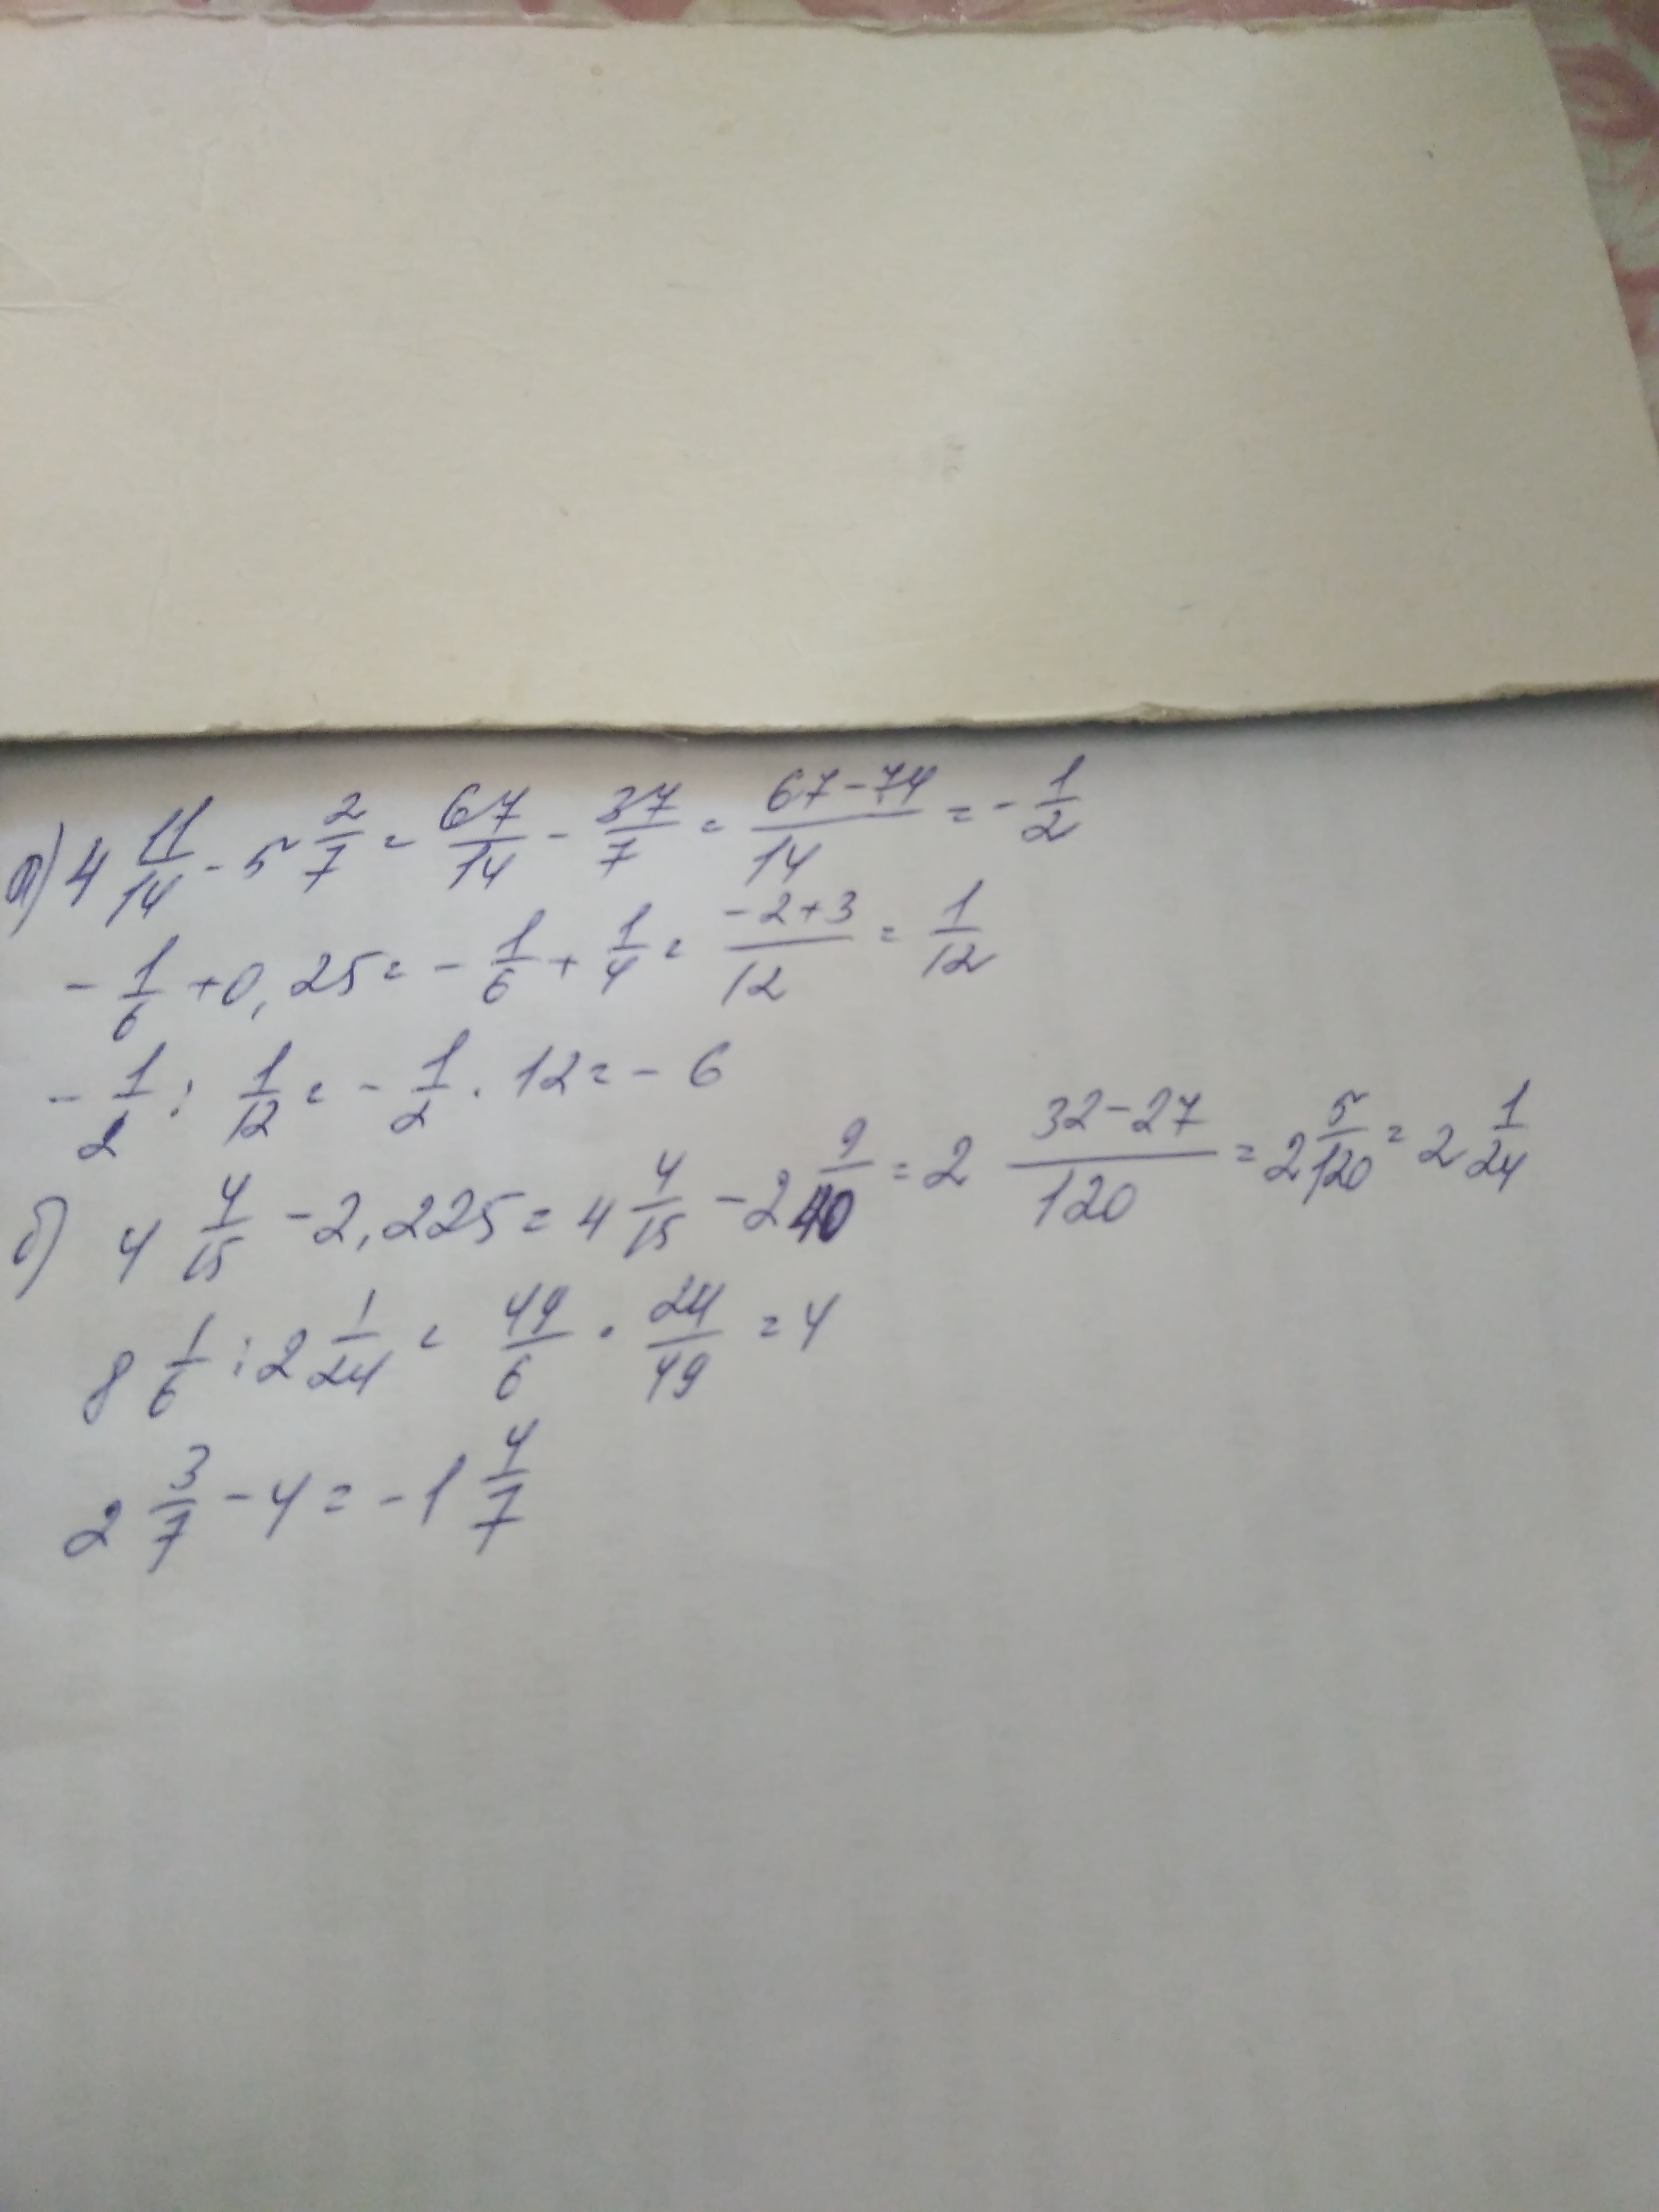 а) 4 11/14 - 5 2/7 = 67/14 - 37/7 = (67-74)/14 = - 1/2
- 1/6 + 0,25 = - 1/6 + 1/4 = (-2+3)/12 = 1/12
- 1/2 : 1/12 = - 1/2 · 12 = - 6
б) 4 4/15 - 2,225 = 4 4/15 - 2 9/40 = 2 (32-27)/120 = 2 5/120 = 2 1/24
8 1/6 : 2 1/24 = 49/6 · 24/49 = 4
2 3/7 - 4 = - 1 4/7